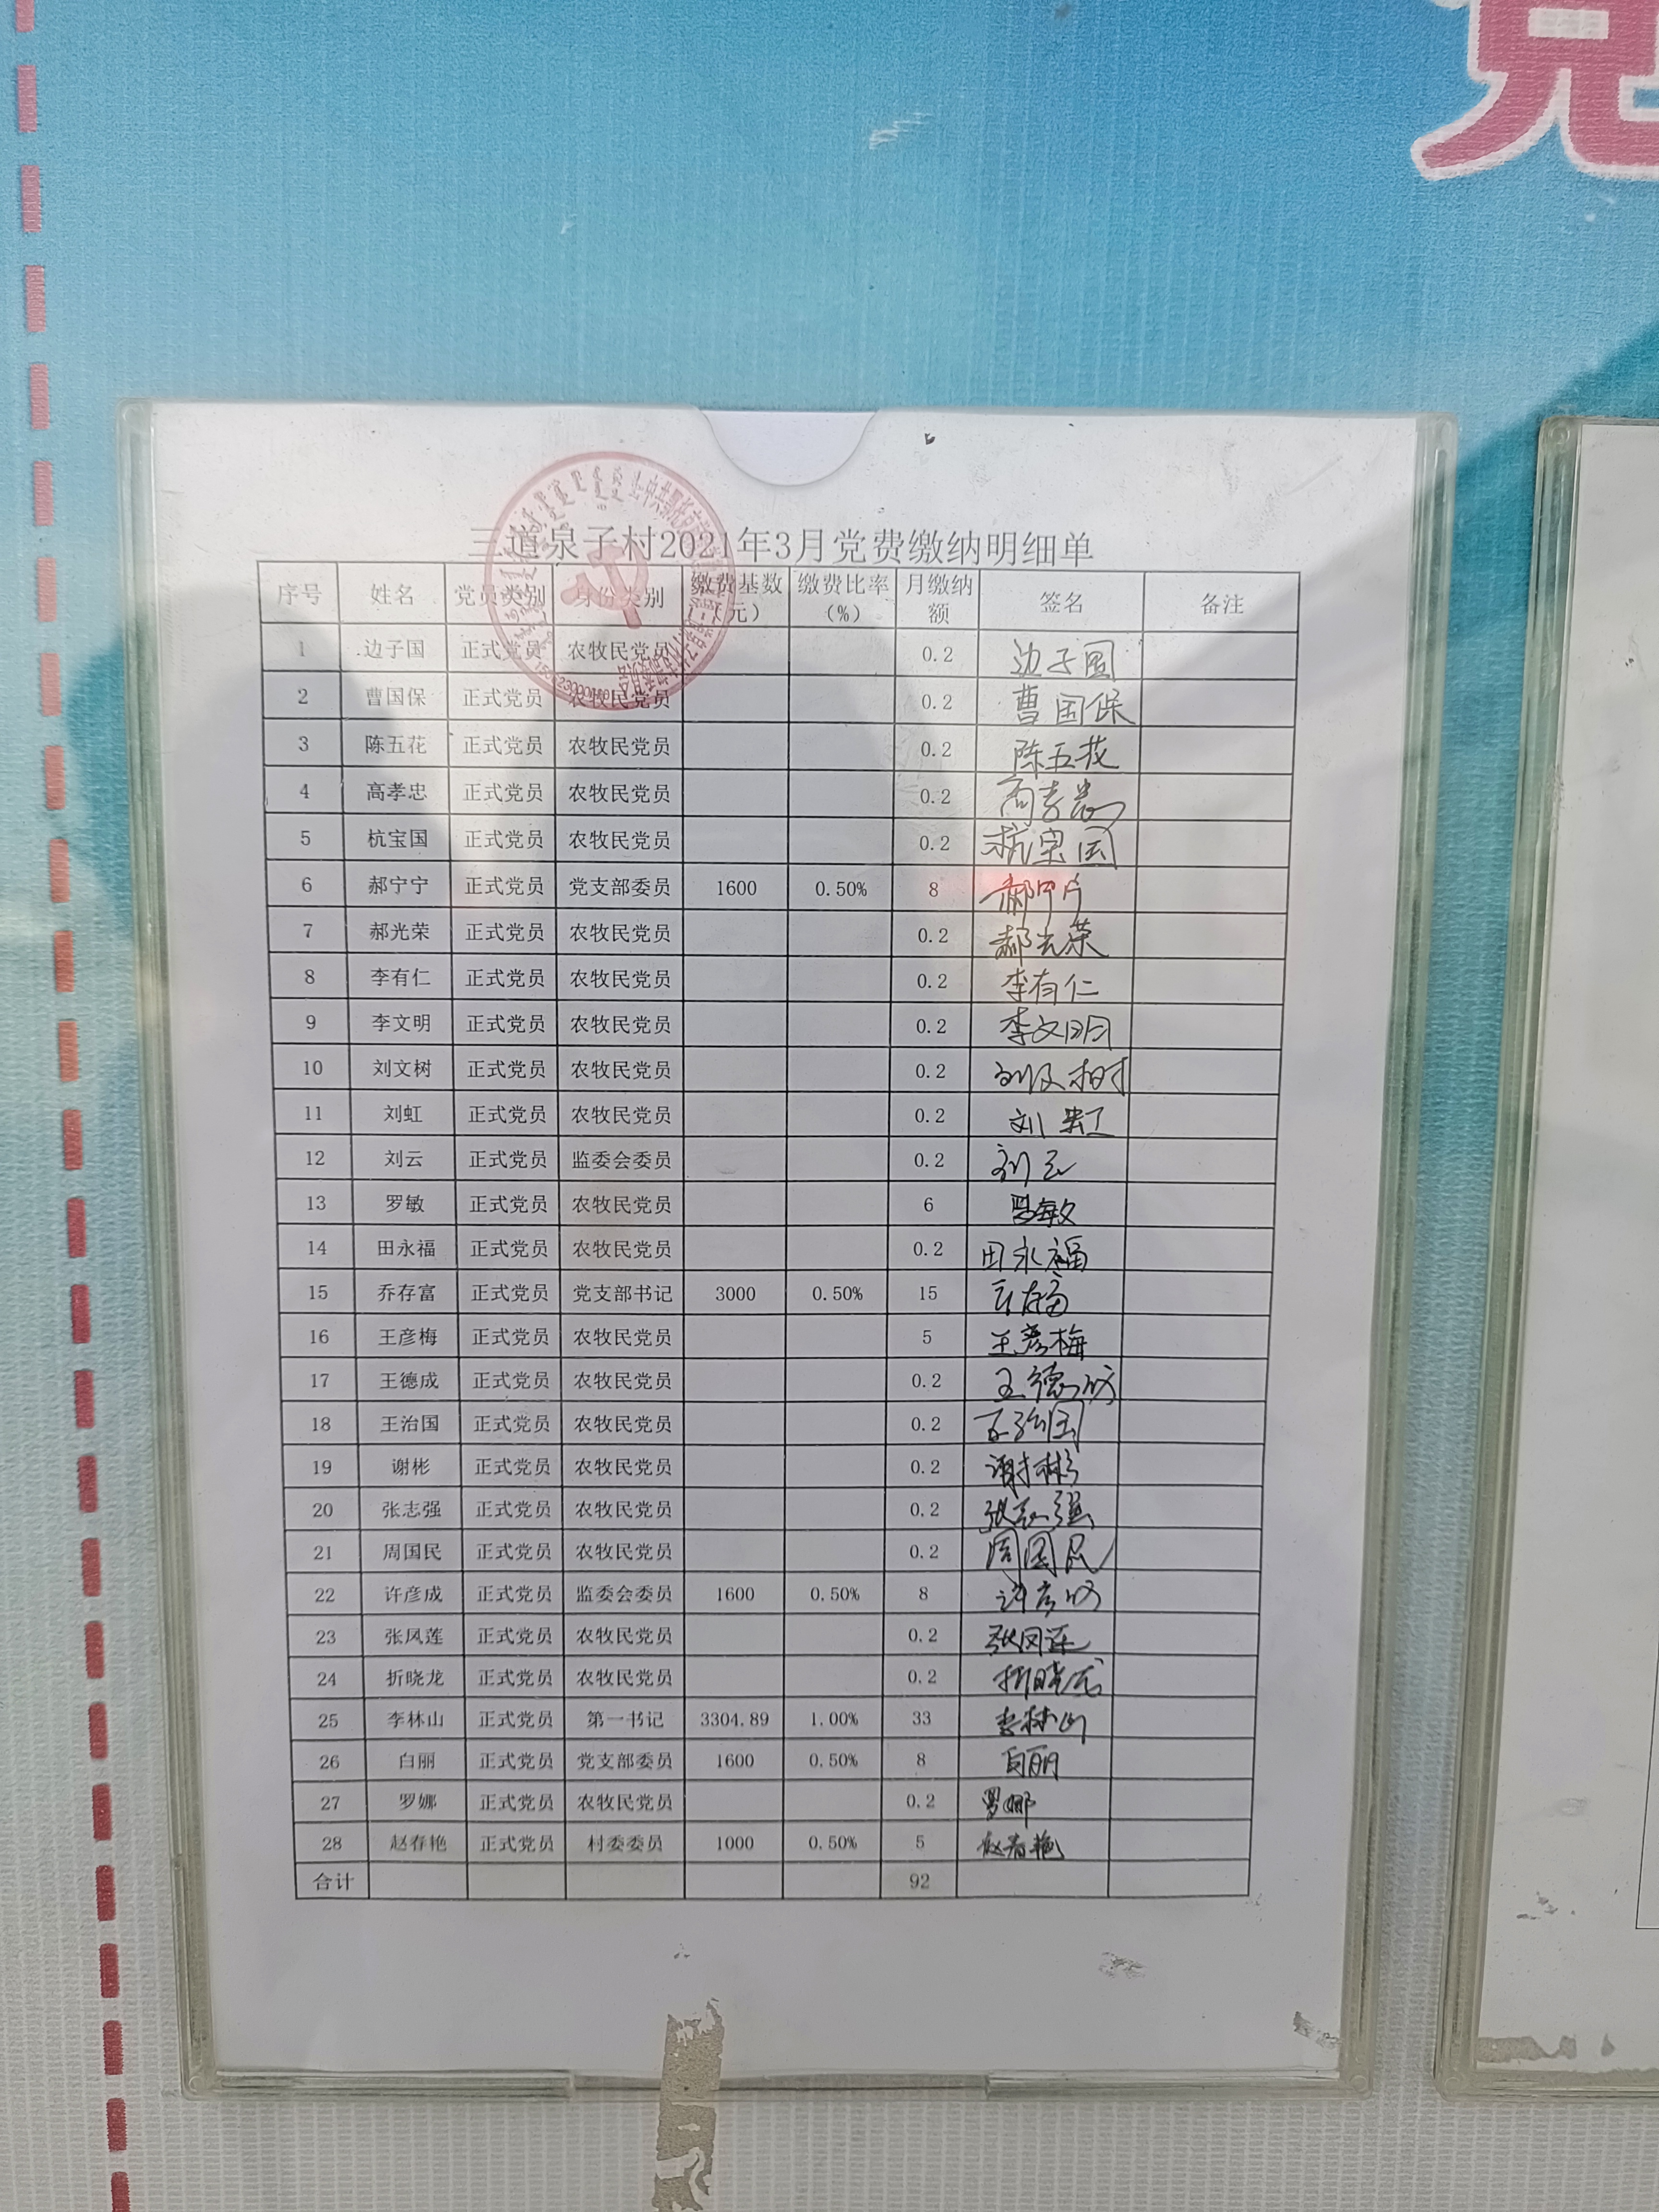 党
三道泉子村2021年3月党费缴纳明细单
序号 姓名 党员类别 身份类别 缴费基数（元） 缴费比率（%） 月缴纳额 签名 备注
1 边子国 正式党员 农牧民党员 0.2 边子国
2 曹国保 正式党员 农牧民党员 0.2 曹国保
3 陈五花 正式党员 农牧民党员 0.2 陈五花
4 高孝忠 正式党员 农牧民党员 0.2 高孝忠
5 杭宝国 正式党员 农牧民党员 0.2 杭宝国
6 郝宁宁 正式党员 党支部委员 1600 0.50% 8 郝宁宁
7 郝光荣 正式党员 农牧民党员 0.2 郝光荣
8 李有仁 正式党员 农牧民党员 0.2 李有仁
9 李文明 正式党员 农牧民党员 0.2 李文明
10 刘文树 正式党员 农牧民党员 0.2 刘文树
11 刘虹 正式党员 农牧民党员 0.2 刘虹
12 刘云 正式党员 监委会委员 0.2 刘云
13 罗敏 正式党员 农牧民党员 6 罗敏
14 田永福 正式党员 农牧民党员 0.2 田永福
15 乔存富 正式党员 党支部书记 3000 0.50% 15
16 王彦梅 正式党员 农牧民党员 5 王彦梅
17 王德成 正式党员 农牧民党员 0.2 王德成
18 王治国 正式党员 农牧民党员 0.2 王治国
19 谢彬 正式党员 农牧民党员 0.2 谢彬
20 张志强 正式党员 农牧民党员 0.2 张志强
21 周国民 正式党员 农牧民党员 0.2 周国民
22 许彦成 正式党员 监委会委员 1600 0.50% 8 许彦成
23 张凤莲 正式党员 农牧民党员 0.2 张凤莲
24 折晓龙 正式党员 农牧民党员 0.2 折晓龙
25 李林山 正式党员 第一书记 3304.89 1.00% 33 李林山
26 白丽 正式党员 党支部委员 1600 0.50% 8 白丽
27 罗娜 正式党员 农牧民党员 0.2 罗娜
28 赵春艳 正式党员 村委委员 1000 0.50% 5 赵春艳
合计 92